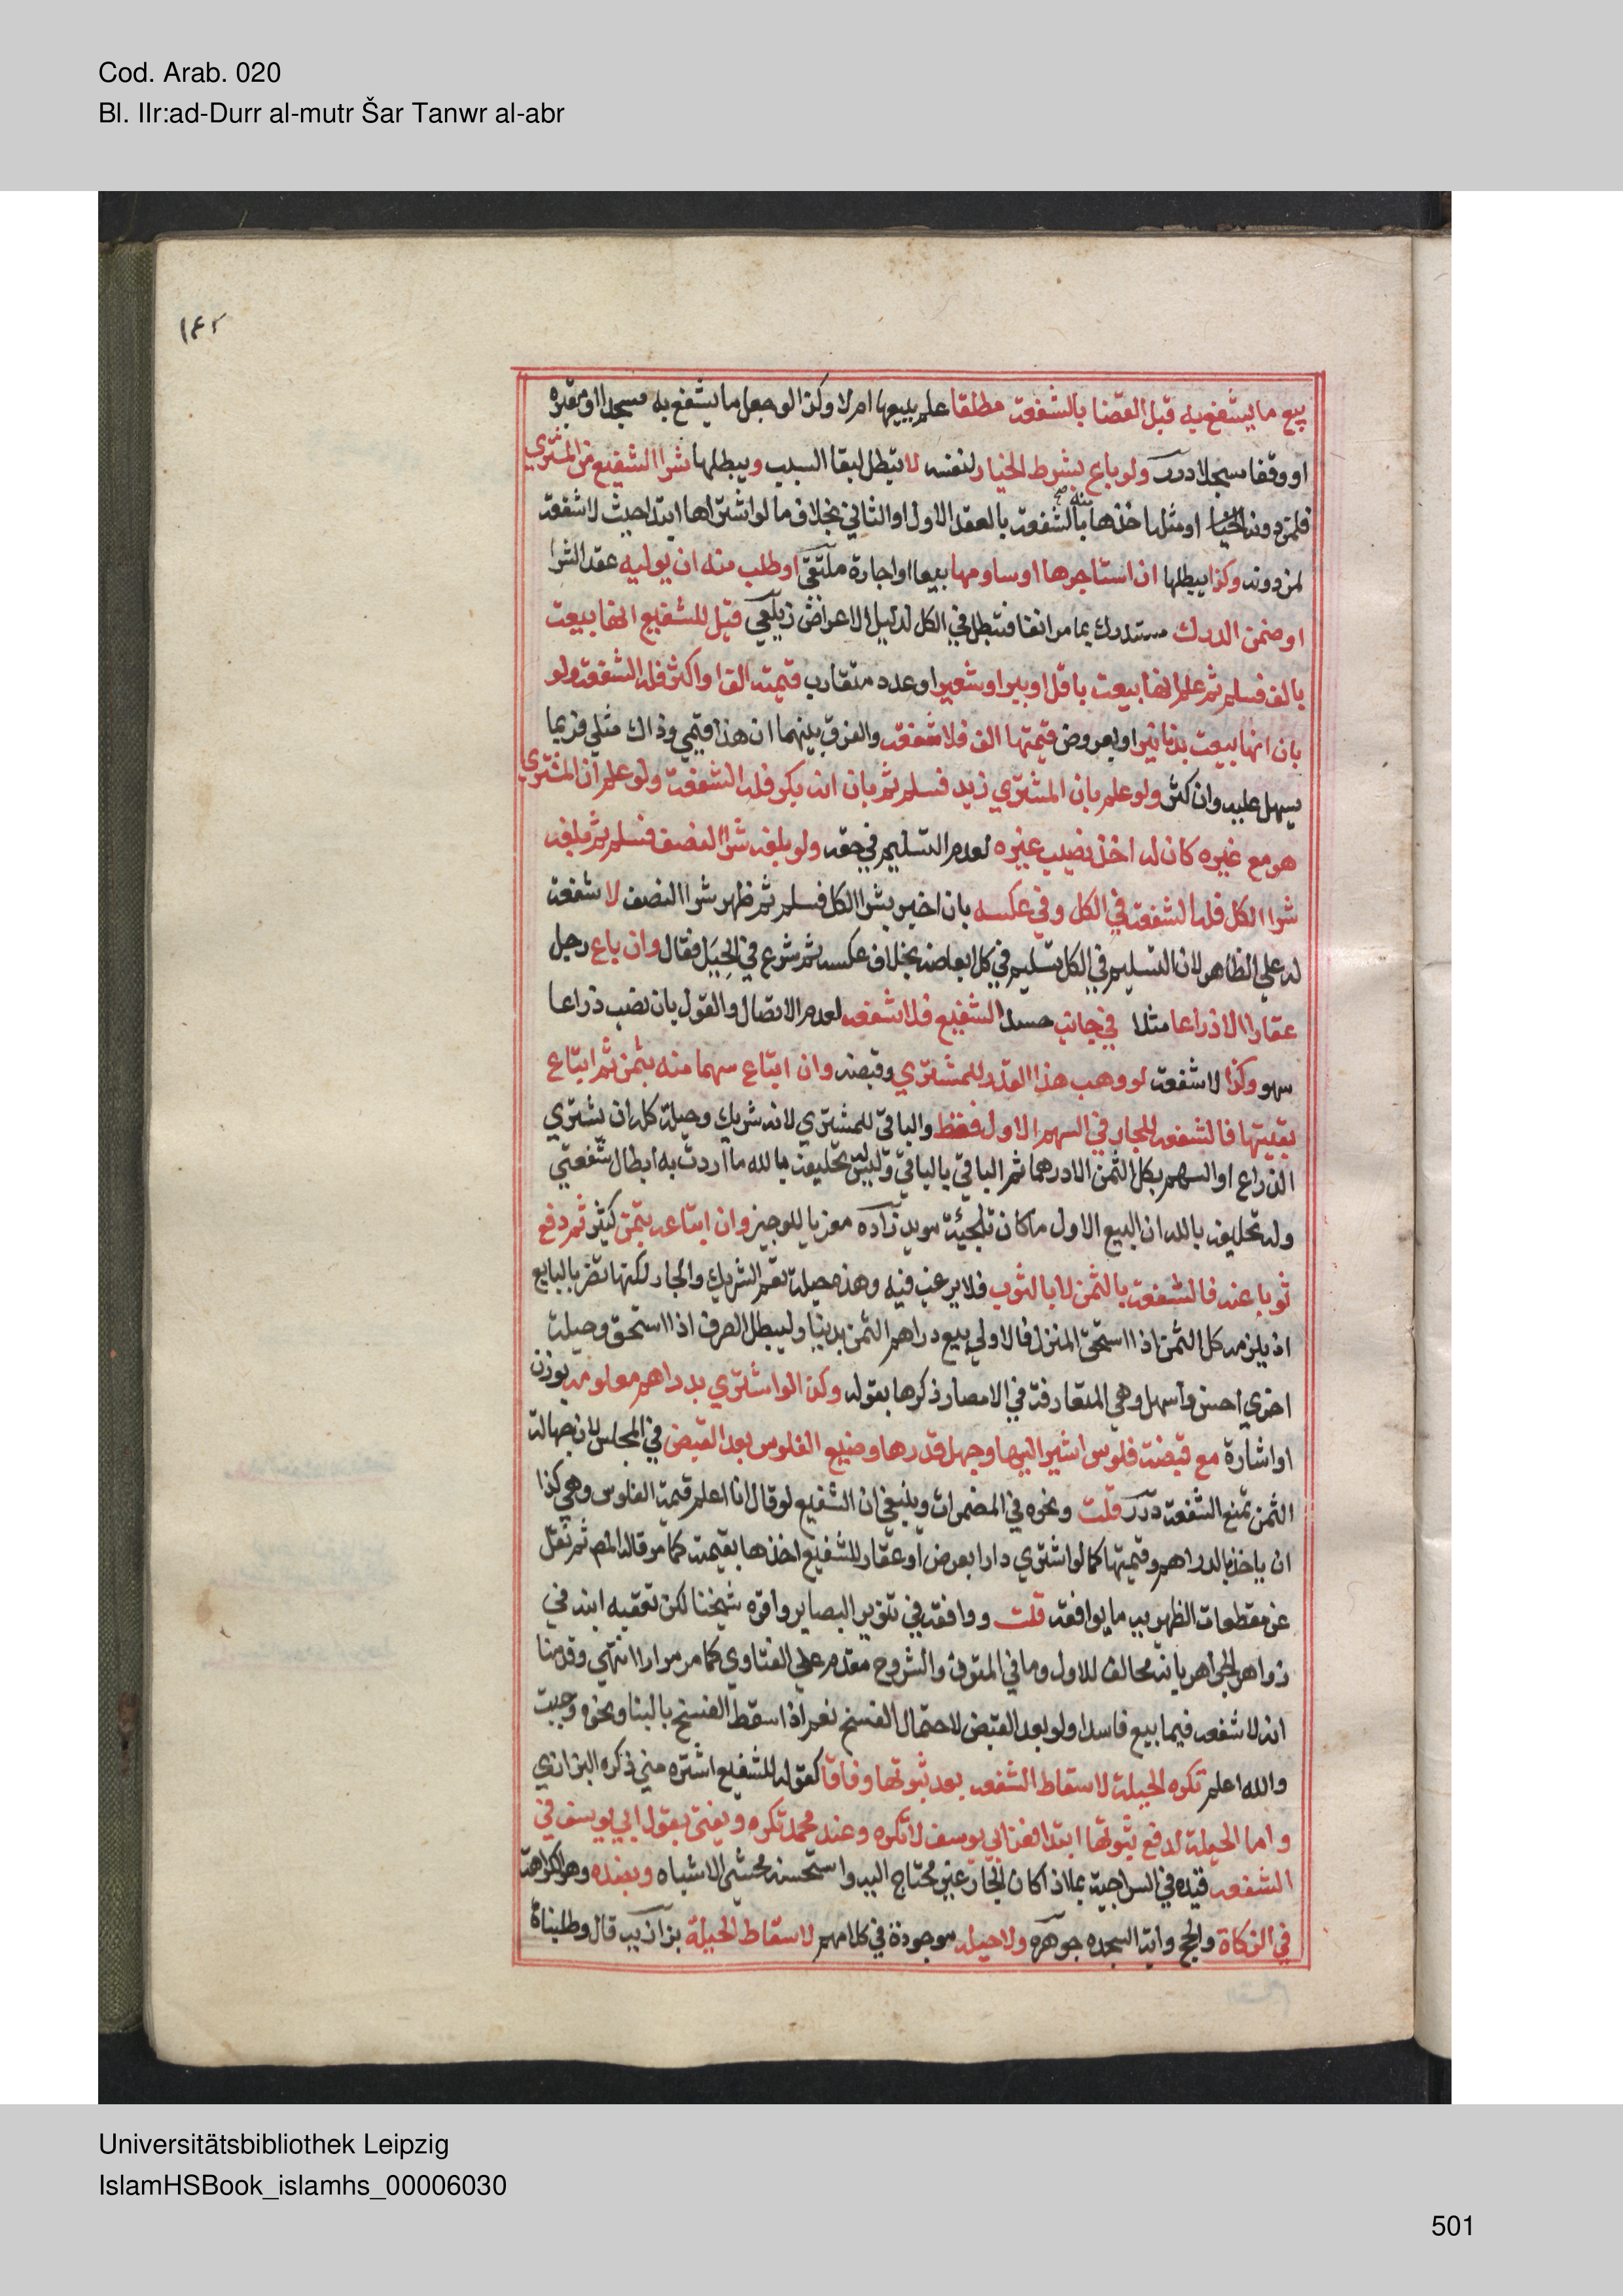 Cod. Arab. 020
Bl. IIr:ad-Durr al-mutr Šar Tanwr al-abr
١٤٢
بيع ما يشفع به قبل القضا بالشفعة مطلقا علم ببيعها ام لا وكذا لو جعل ما يشفع به مسجدا او مقبرة
او وقفا مسجلا درر ولو باع بشرط الخيار لنفسه لا تبطل لبقا السبب ويبطلها شرا الشفيع من المشتري
فلمن دونه او مثله اخذها منه صح بالشفعة بالعقد الاول او الثاني بخلاف ما لو اشتراها ابتدا حيث لا شفعة
لمن دونه وكذا يبطلها ان استاجرها او ساومها بيعا او اجارة ملتقى او طلب منه ان يوليه عقد الشرا
او ضمن الدرك مستدرك بما مر انفا فتبطل في الكل لدليل الاعراض زيلعي قيل للشفيع انها بيعت
بالف فسلم ثم علم انها بيعت باقل او ببر او شعير او عدد متقارب قيمته الف او اكثر فله الشفعة ولو
بان انها بيعت بدنانير او بعروض قيمتها الف فلا شفعة والفرق بينهما ان هذا قيمي وذاك مثلي فربما
يسهل عليه وان كثر ولو علم بان المشتري زيد فسلم ثم بان انه بكر فله الشفعة ولو علم ان المشتري
هو مع غيره كان له اخذ نصيب غيره لعدم التسليم في حقه ولو بلغه شرا النصف فسلم ثم بلغه
شرا الكل فله الشفعة في الكل وفي عكسه بان اخبر بشرا الكل فسلم ثم ظهر شرا النصف لا شفعة
له علي الظاهر لان التسليم في الكل تسليم في كل ابعاضه بخلاف عكسه ثم شرع في الحِيَل فقال وان باع رجل
عقارا الا ذراعا مثلا في جانب حسد الشفيع فلا شفعه لعدم الاتصال والقول بان نصب ذراعا
سهو وكذا لا شفعة لو وهب هذا القدر للمشتري وقبضه وان ابتاع سهما منه بثمن ثم ابتاع
بقيتها فالشفعه للجار في السهم الاول فقط والباقي للمشتري لانه شريك وحيلة كله ان يشتري
الذراع او السهم بكل الثمن الا درهما ثم الباقي بالباقي وليس تحليفه بالله ما اردت به ابطال شفعتي
وله تحليفه بالله ان البيع الاول ما كان تلجئة مويد زاده معزيا للوجيز وان ابتاعه بثمن كثير ثم دفع
ثوبا عنه فالشفعة بالثمن لا بالثوب فلا يرغب فيه وهذه حيلة تعم الشريك والجار لكنها تضر بالبايع
اذ يلزمه كل الثمن اذا استحق المنزل فالاولي بيع دراهم الثمن بدينار ليبطل الصرف اذا استحق وحيلة
اخري احسن واسهل وهي المتعارفة في الامصار ذكرها بقوله وكذا لو اشتري بدراهم معلومه بوزن
او اشارة مع قبضة فلوس اشير اليها وجهل قدرها وضيع الفلوس بعد القبض في المجلس لان جهالة
الثمن تمنع الشفعة درر قلت ونحوه في المضمرات وينبغي ان الشفيع لو قال انا اعلم قيمة الفلوس وهي كذا
ان ياخذ بالدراهم وقيمتها كما لو اشتري دارا بعرض او عقار للشفيع اخذها بقيمته كما مر قاله المصر ثم نقل
عن مقطعات الظهيريه ما يوافقه قلت ووافقه في تنوير البصاير واقره شيخنا لكن تعقبه ابنه في
زواهر الجواهر بانه مخالف للاول وما في المتون والشروح مقدم علي الفتاوي كما مر مرارا انتهي وقدمنا
انه لا شفعه فيما بيع فاسدا ولو بعد القبض لاحتمال الفسخ نعم اذا سقط الفسخ بالبنا ونحوه وجبت
والله اعلم تكره الحيلة لاسقاط الشفعه بعد ثبوتها وفاقا كقوله للشفيع اشتره مني ذكره البزازي
واما الحيلة لدفع ثبوتها ابتدا فعند ابي يوسف لا تكره وعند محمد تكره ويفتى بقول ابي يوسف في
الشفعه قيده في السراجية بما اذا كان الجار غير محتاج اليه واستحسنه محشي الاشباه وبضده وهو الكراهة
في الزكاة والحج واية السجده جوهره ولا حيله موجودة في كلامهم لاسقاط الحيلة بزازيه قال وطلبناه
Universitätsbibliothek Leipzig
IslamHSBook_islamhs_00006030
501